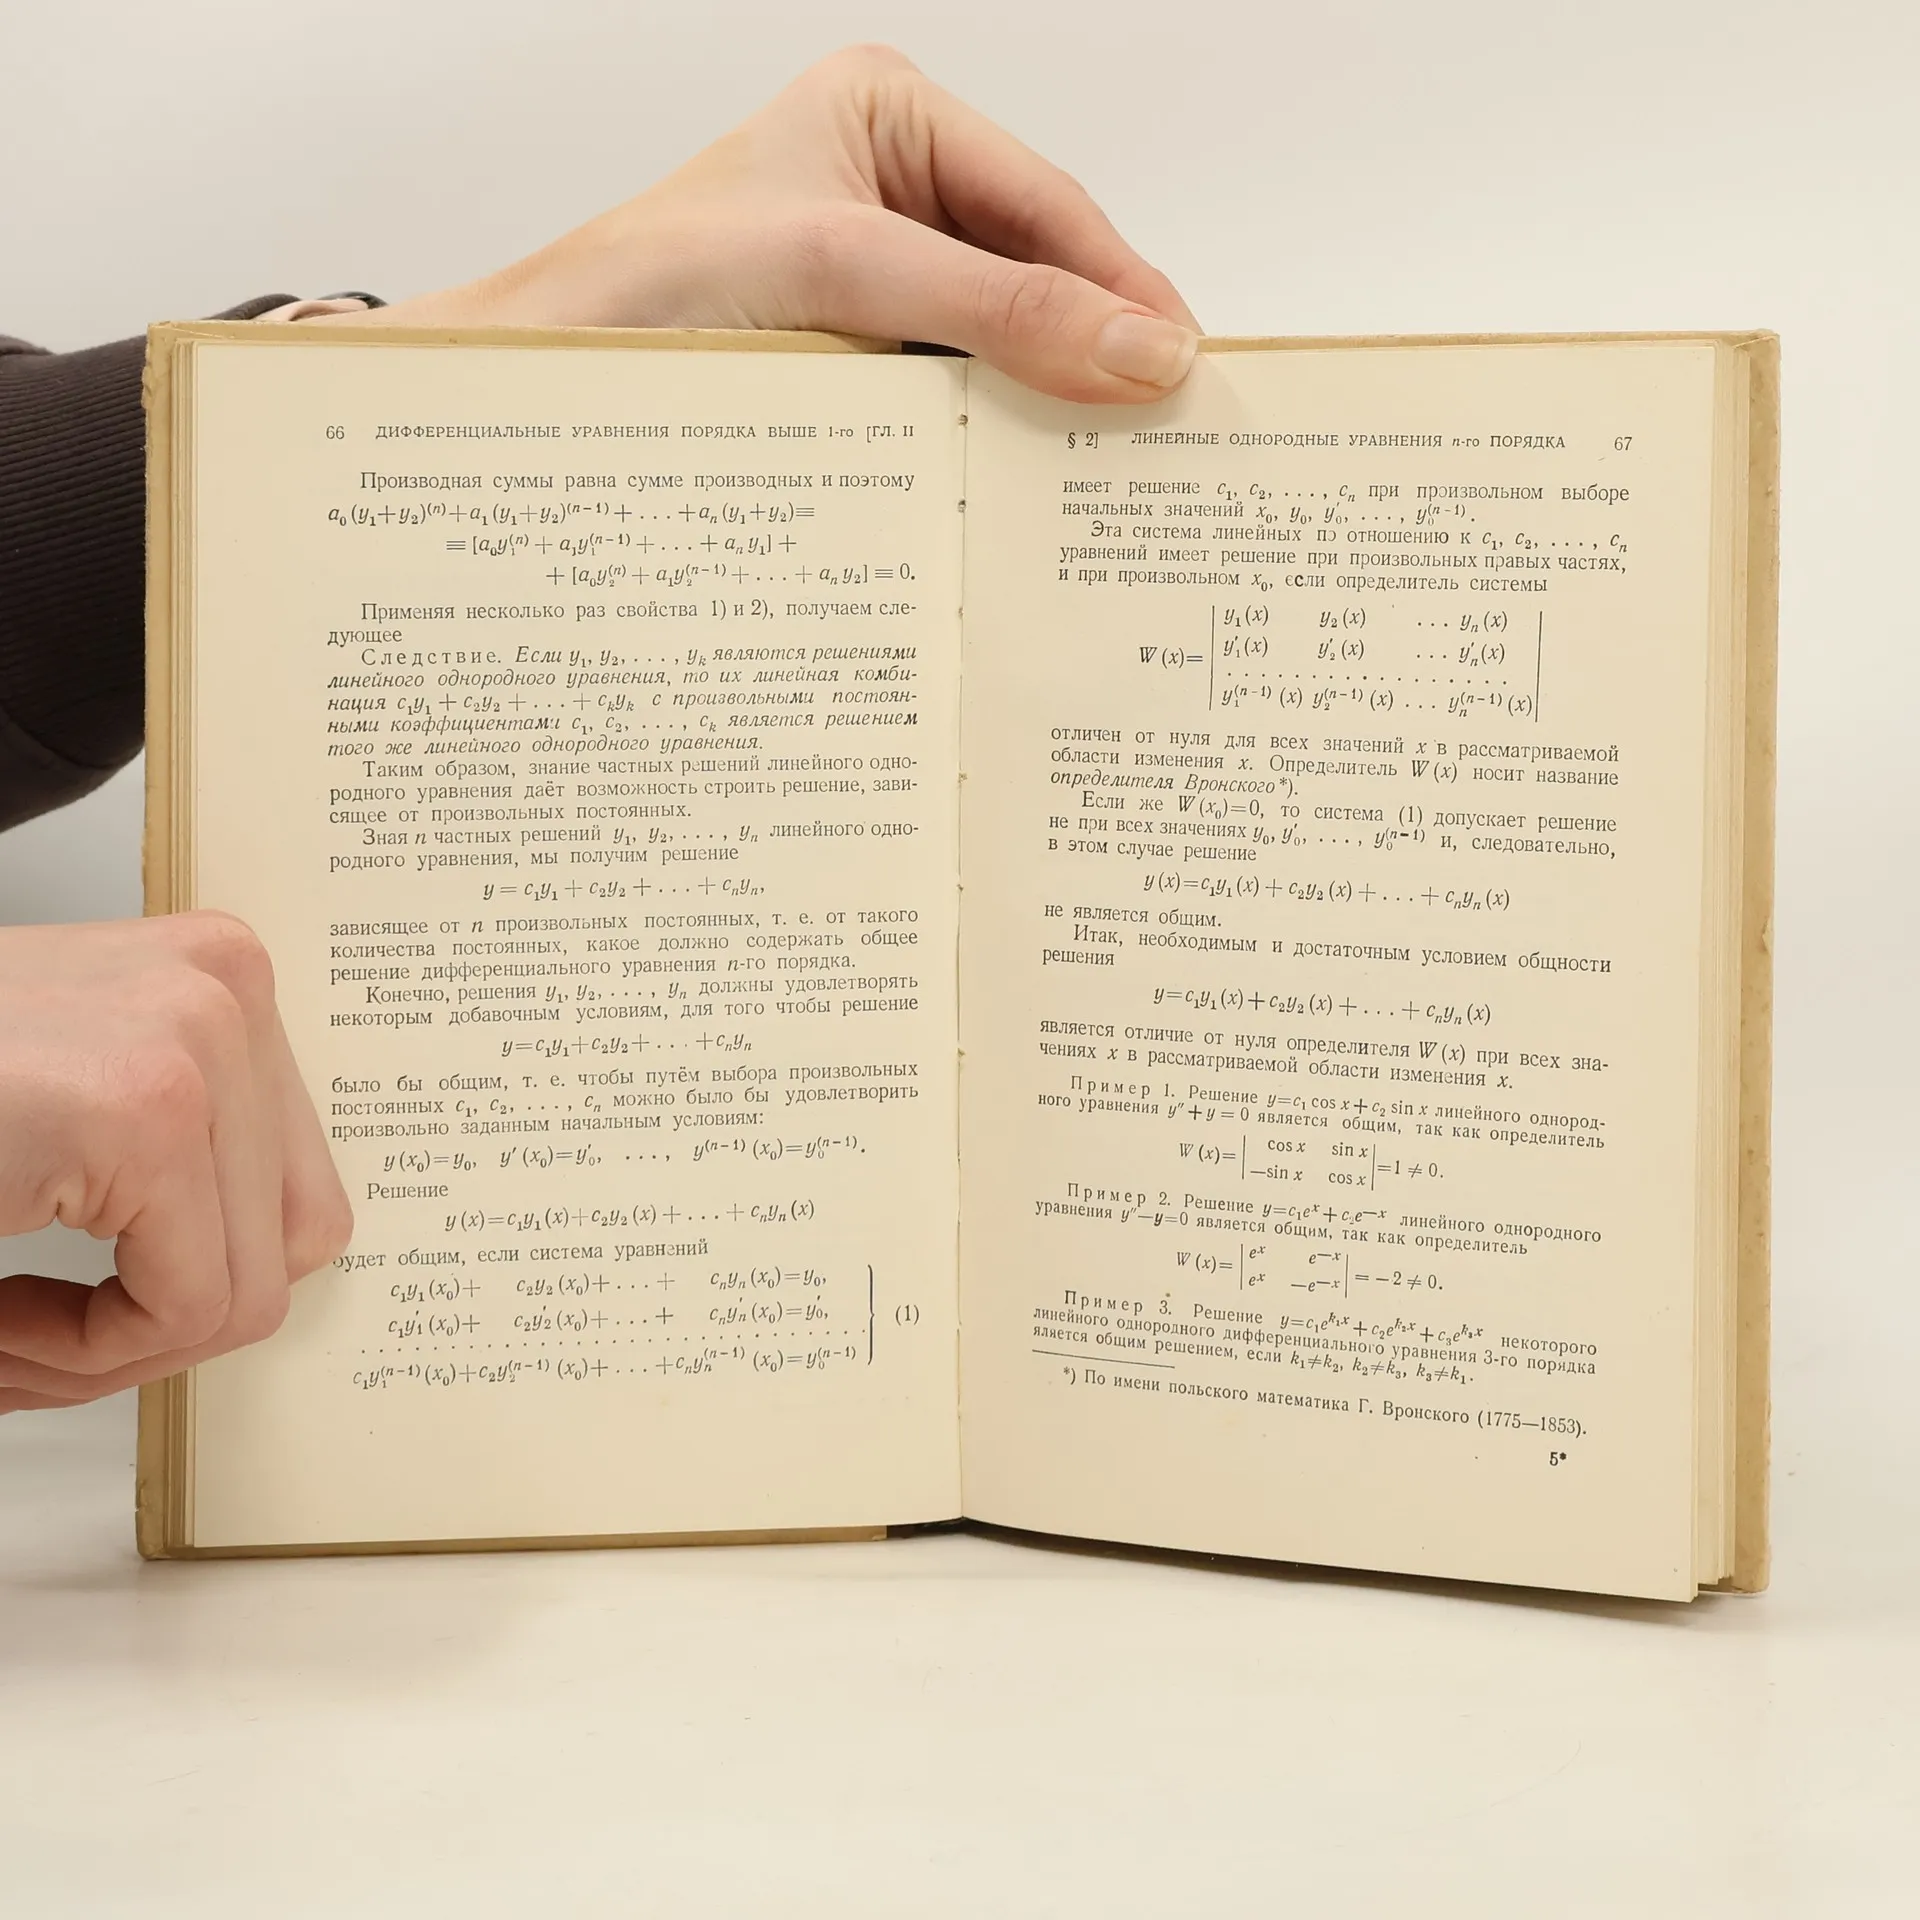 66 ДИФФЕРЕНЦИАЛЬНЫЕ УРАВНЕНИЯ ПОРЯДКА ВЫШЕ 1-го [ГЛ. II
Производная суммы равна сумме производных и поэтому
a₀ (y₁+y₂)⁽ⁿ⁾+a₁ (y₁+y₂)⁽ⁿ⁻¹⁾+ . . . +aₙ (y₁+y₂)≡
≡ [a₀y₁⁽ⁿ⁾ + a₁y₁⁽ⁿ⁻¹⁾ + . . . + aₙ y₁] +
+ [a₀y₂⁽ⁿ⁾ + a₁y₂⁽ⁿ⁻¹⁾ + . . . + aₙ y₂] ≡ 0.
Применяя несколько раз свойства 1) и 2), получаем сле-
дующее
Следствие. Если y₁, y₂, . . . , yₖ являются решениями
линейного однородного уравнения, то их линейная комби-
нация c₁y₁ + c₂y₂ + . . . + cₖyₖ с произвольными постоян-
ными коэффициентами c₁, c₂, . . . , cₖ является решением
того же линейного однородного уравнения.
Таким образом, знание частных решений линейного одно-
родного уравнения даёт возможность строить решение, зави-
сящее от произвольных постоянных.
Зная n частных решений y₁, y₂, . . . , yₙ линейного одно-
родного уравнения, мы получим решение
y = c₁y₁ + c₂y₂ + . . . + cₙyₙ,
зависящее от n произвольных постоянных, т. е. от такого
количества постоянных, какое должно содержать общее
решение дифференциального уравнения n-го порядка.
Конечно, решения y₁, y₂, . . . , yₙ должны удовлетворять
некоторым добавочным условиям, для того чтобы решение
y=c₁y₁+c₂y₂+ . . . +cₙyₙ
было бы общим, т. е. чтобы путём выбора произвольных
постоянных c₁, c₂, . . . , cₙ можно было бы удовлетворить
произвольно заданным начальным условиям:
y (x₀)=y₀, y′ (x₀)=y₀′, . . . , y⁽ⁿ⁻¹⁾ (x₀)=y₀⁽ⁿ⁻¹⁾.
Решение
y (x)=c₁y₁ (x)+c₂y₂ (x) + . . . + cₙyₙ (x)
будет общим, если система уравнений
c₁y₁ (x₀)+ c₂y₂ (x₀)+ . . . + cₙyₙ (x₀)=y₀,
c₁y₁′ (x₀)+ c₂y₂′ (x₀)+ . . . + cₙyₙ′ (x₀)=y₀′, (1)
. . . . . . . . . . . . . . . . . . . . . . .
c₁y₁⁽ⁿ⁻¹⁾ (x₀)+c₂y₂⁽ⁿ⁻¹⁾ (x₀)+ . . . +cₙyₙ⁽ⁿ⁻¹⁾ (x₀)=y₀⁽ⁿ⁻¹⁾
§ 2] ЛИНЕЙНЫЕ ОДНОРОДНЫЕ УРАВНЕНИЯ n-го ПОРЯДКА 67
имеет решение c₁, c₂, . . . , cₙ при произвольном выборе
начальных значений x₀, y₀, y₀′, . . . , y₀⁽ⁿ⁻¹⁾.
Эта система линейных по отношению к c₁, c₂, . . . , cₙ
уравнений имеет решение при произвольных правых частях,
и при произвольном x₀, если определитель системы
y₁ (x) y₂ (x) . . . yₙ (x)
y₁′ (x) y₂′ (x) . . . yₙ′ (x)
W (x)=
. . . . . . . . . . . . . . . .
y₁⁽ⁿ⁻¹⁾ (x) y₂⁽ⁿ⁻¹⁾ (x) . . . yₙ⁽ⁿ⁻¹⁾ (x)
отличен от нуля для всех значений x в рассматриваемой
области изменения x. Определитель W (x) носит название
определителя Вронского *).
Если же W (x₀)=0, то система (1) допускает решение
не при всех значениях y₀, y₀′, . . . , y₀⁽ⁿ⁻¹⁾ и, следовательно,
в этом случае решение
y (x)=c₁y₁ (x) + c₂y₂ (x) + . . . + cₙyₙ (x)
не является общим.
Итак, необходимым и достаточным условием общности
решения
y=c₁y₁ (x) + c₂y₂ (x) + . . . + cₙyₙ (x)
является отличие от нуля определителя W (x) при всех зна-
чениях x в рассматриваемой области изменения x.
Пример 1. Решение y=c₁ cos x + c₂ sin x линейного однород-
ного уравнения y″ + y = 0 является общим, так как определитель
W (x)= | cos x sin x |
| —sin x cos x | =1 ≠ 0.
Пример 2. Решение y=c₁eˣ + c₂e⁻ˣ линейного однородного
уравнения y″—y=0 является общим, так как определитель
W (x)= | eˣ e⁻ˣ |
| eˣ —e⁻ˣ | = — 2 ≠ 0.
Пример 3. Решение y=c₁e^{k₁x} + c₂e^{k₂x} + c₃e^{k₃x} некоторого
линейного однородного дифференциального уравнения 3-го порядка
является общим решением, если k₁≠k₂, k₂≠k₃, k₃≠k₁.
*) По имени польского математика Г. Вронского (1775—1853).
5*